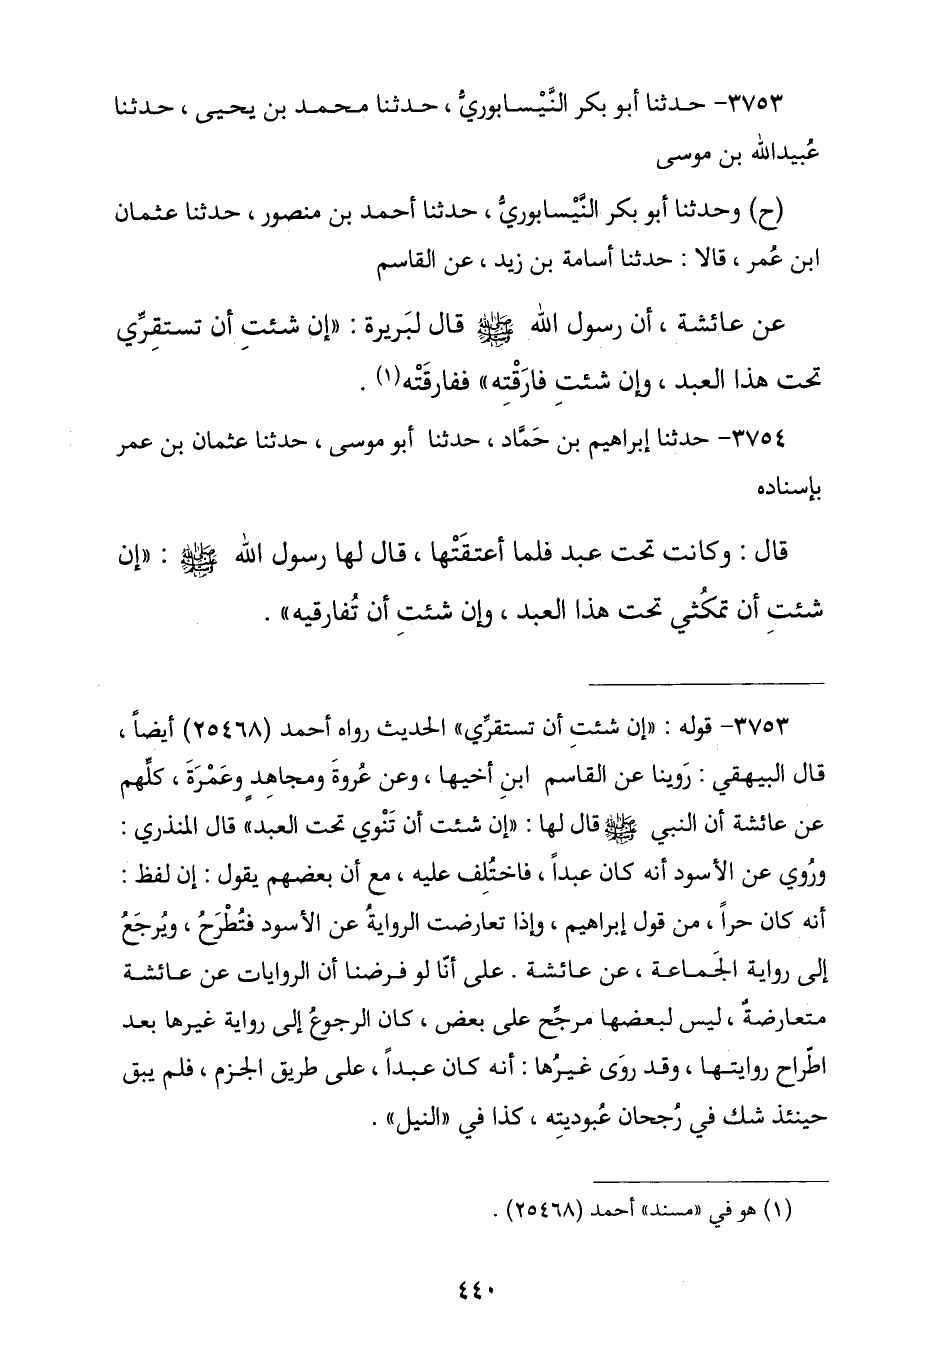 ٣٧٥٣- حدثنا أبو بكر النَّيْسابوريُّ ، حدثنا محمد بن يحيى ، حدثنا
عُبيدالله بن موسى
(ح) وحدثنا أبو بكر النَّيْسابوريُّ ، حدثنا أحمد بن منصور ، حدثنا عثمان
ابن عُمر ، قالا : حدثنا أسامة بن زيد ، عن القاسم
عن عائشة ، أن رسول الله ﷺ قال لبَريرة : «إن شئتِ أن تستقرِّي
تحت هذا العبد ، وإن شئتِ فارَقْتِه» ففارقَتْه(١) .
٣٧٥٤- حدثنا إبراهيم بن حَمَّاد ، حدثنا أبو موسى ، حدثنا عثمان بن عمر
بإسناده
قال : وكانت تحت عبد فلما أعتقَتْها ، قال لها رسول الله ﷺ : «إن
شئتِ أن تمكُثي تحت هذا العبد ، وإن شئتِ أن تُفارقيه» .
٣٧٥٣- قوله : «إن شئتِ أن تستقرِّي» الحديث رواه أحمد (٢٥٤٦٨) أيضاً ،
قال البيهقي : رَوينا عن القاسم ابنِ أخيها ، وعن عُروةَ ومجاهدٍ وعَمْرَةَ ، كلِّهم
عن عائشة أن النبي ﷺ قال لها : «إن شئت أن تَنْوي تحت العبد» قال المنذري :
ورُوي عن الأسود أنه كان عبداً ، فاختُلف عليه ، مع أن بعضهم يقول : إن لفظ :
أنه كان حراً ، من قول إبراهيم ، وإذا تعارضت الروايةُ عن الأسود فتُطْرَحُ ، ويُرجَعُ
إلى رواية الجَماعة ، عن عائشة . على أنّا لو فرضنا أن الروايات عن عائشة
متعارضةٌ ، ليس لبعضها مرجِّح على بعض ، كان الرجوعُ إلى رواية غيرها بعد
اطّراح روايتها ، وقد روَى غيرُها : أنه كان عبداً ، على طريق الجزم ، فلم يبق
حينئذ شك في رُجحان عُبوديتِه ، كذا في «النيل» .
(١) هو في «مسند» أحمد (٢٥٤٦٨) .
٤٤٠